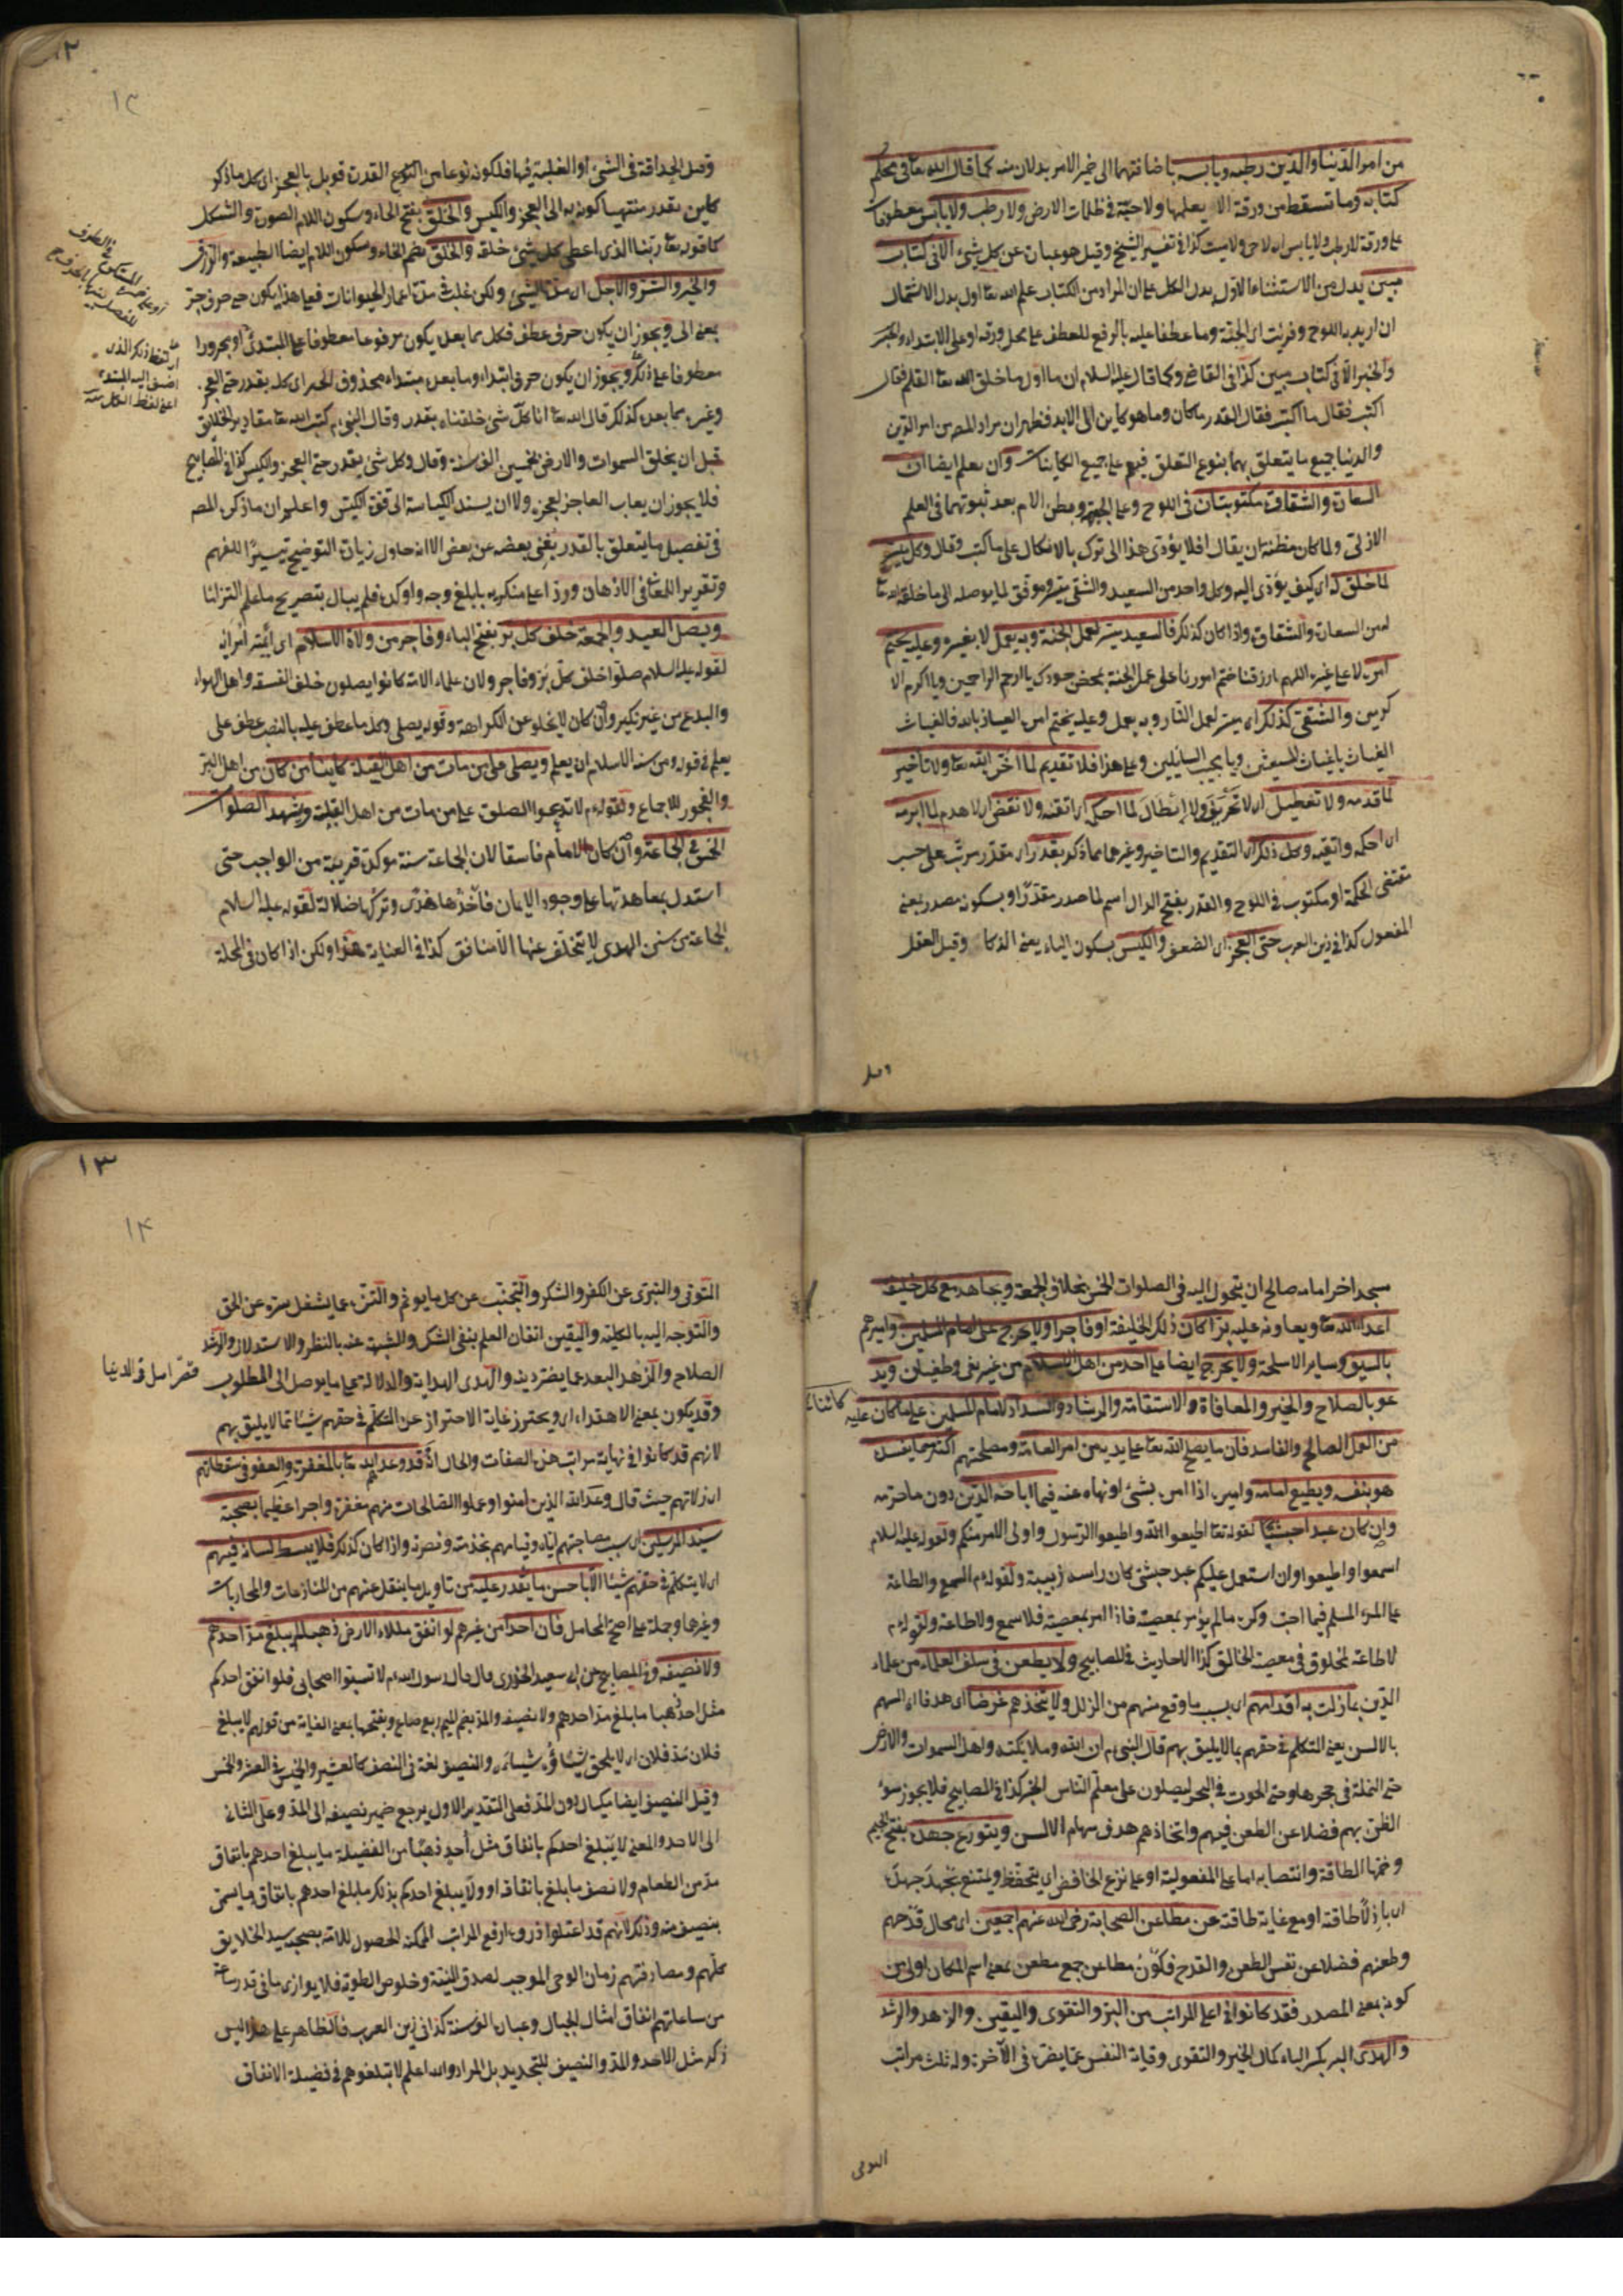 من امور الدنيا والدين رطبه ويابسه باضافتهما الى ضمير الامر بدلان منه كما قال الله تعا فى محكم
كتابه وما تسقط من ورقة الا يعلمها ولا حبة فى ظلمات الارض ولا رطب ولا يابس معطوفات
على ورقة لا رطب ولا يابس اى لا حى ولا ميت كذا فى تفسير الشيخ وقيل هو عبارة عن كل شئ الا فى كتاب
مبين بدل من الاستثناء الاول بدل الكل على ان المراد من الكتاب علم الله تعا او بدل الاشتمال
ان اريد به اللوح وقرئت اى الحبة وما عطفا عليه بالرفع للعطف على محل ورقة او على الابتداء والخبر
والخبر الا فى كتاب مبين كذا فى القاضى وكما قال عليه السلام ان ما اول ما خلق الله تعا القلم فقال
اكتب فقال ما اكتب فقال القدر ما كان وما هو كاين الى الابد فظهر ان مراد المص من امر الدين
والدنيا جميع ما يتعلق بهما بنوع التعلق فيعم على جميع الكاينات وان يعلم ايضا ان
السعادة والشقاوة مكتوبتان فى اللوح وعلى الجبهة وبطن الام بعد ثبوتهما فى العلم
الازلى ولما كان مظنة ان يقال افلا يؤدى هذا الى ترك بالاتكال على ما كتب وقال وكل ميسر
لما خلق له اى كيف يؤدى اليه وكل واحد من السعيد والشقى ميسر وموفق لما يوصله الى ما خلقه الله تعا
له من السعادة والشقاوة واذا كان كذلك فالسعيد ميسر لعمل الجنة وبه يعمل لا بغيره وعليه يختم
امره لا على غيره اللهم ارزقنا ختم امورنا على عمل الجنة بمحض جودك يا ارحم الراحمين ويا اكرم الا
كرمين والشقى كذلك اى ميسر لعمل النار وبه يعمل وعليه يختم امره العياذ بالله فالغياث
الغياث يا غياث المستغيثين ويا مجيب السائلين وعلى هذا فلا تقديم لما اخر الله تعا ولا تأخير
لما قدمه ولا تعطيل اى لا تخريق ولا إبطال لما احكمه اى اتقنه ولا نقض اى لا هدم لما ابرمه
اى احكمه واتقنه وكل ذلك اى التقديم والتاخير وغيرهما مما ذكر بقدر اى مقدر مرتب على حسب
مقتضى الحكمة او مكتوب فى اللوح والقدر بفتح الدال اسم لما صدر مقدرا وبسكونه مصدر بمعنى
المفعول كذا فى زين العرب حتى العجز اى الضعف والكيس بسكون الياء يعنى الذكاء وقيل العقل
وقيل
١٢
١٣
وقيل الحذاقة فى الشئ او الغلبة فيها فلكونه نوعا من انواع القدرة قوبل بالعجز اى كل ما ذكر
كاين بقدر منتهيا كونه به الى العجز والكيس والخلق بفتح الخاء وسكون اللام الصورة والشكل
كما قوله تعا ربنا الذى اعطى كل شئ خلقه والخلق بضم الخاء وسكون اللام ايضا الطبيعة والرزق
والخير والشر والاجل اى مدة الشئ ولكن غلبت فى مدة اعمار الحيوانات فعلى هذا يكون حتى حرف جر
بمعنى الى ويجوز ان يكون حرف عطف فكل مما بعده يكون مرفوعا معطوفا على المبتدئ او مجرورا
معطوفا على ذلك ويجوز ان يكون حرف ابتداء وما بعده مبتداء محذوف الخبر اى كله بقدر حتى العجز
وغيره مما بعده كذلك قال الله تعا انا كل شئ خلقناه بقدر وقال النبى م كتب الله تعا مقادير الخلايق
قبل ان يخلق السموات والارض بخمسين الف سنة وقال وكل شئ بقدر حتى العجز والكيس كذا فى المصابيح
فلا يجوز ان يعاب العاجز لعجزه ولا ان يسند الكياسة الى قوة الكيس واعلم ان ما ذكره المص
فى تفصيل ما يتعلق بالقدر يغنى بعضه عن بعض الا انه حاول زيادة التوضيح تيسيرا للفهم
وتقريرا للمعنى فى الاذهان وردا على منكريه بابلغ وجه واوكده فلم يبال بتصريح ما علم التزاما
ويصل العيد والجمعة خلف كل بر بفتح الباء وفاجر من ولاة الاسلام اى ائمته امرائه
لقوله عليه السلام صلوا خلف كل بر وفاجر ولان علماء الامة كانوا يصلون خلف الفسقه واهل الهواء
والبدع من غير نكير وان كان لا يخلو عن الكراهة وقوله يصلى وكل ما عطف عليه بالنصب عطف على
يعلم فى قوله ومن سنة الاسلام ان يعلم ويصلى على من مات من اهل القبلة كاينا من كان من اهل البر
والفجور للاجماع ولقوله م لا تدعوا الصلوة على من مات من اهل القبلة ويشهد الصلوات
الخمس فى الجماعة وان كان الامام فاسقا لان الجماعة سنة موكدة قريبة من الواجب حتى
استدل بمعاهدتها على وجود الايمان فأخذها هدى وتركها ضلالة لقوله عليه السلام
الجماعة من سنن الهدى لا يتخلف عنها الا منافق كذا فى العناية هذا ولكن اذا كان فى المحلة
١٣
١٤
مسجد اخر امامه صالح ان يتحول اليه فى الصلوات الخمس بخلاف الجمعة ويجاهد مع كل خليفة
اعداء الله تعا ويعاونه عليه برا كان ذلك الخليفة او فاجرا ولا يخرج على امام المسلمين واميرهم
بالسيف وساير الاسلحة ولا يخرج ايضا على احد من اهل الاسلام من غير بغى وطغيان ويد
عو بالصلاح والخير والمعافاة والاستقامة والرشاد والسداد لامام المسلمين على ما كان عليه
كائنا
من العمل الصالح والفاسد فان ما يصلح الله تعا على يديه من امر العامة ومصلحتهم اكثر مما يفسد
هو بنفسه ويطيع امامه واميره اذا امره بشئ او نهاه عنه فيما اباحه الدين دون ما حرمه
وان كان عبدا حبشيا لقوله تعا اطيعوا الله واطيعوا الرسول واولى الامر منكم ولقوله عليه السلام
اسمعوا واطيعوا وان استعمل عليكم عبد حبشى كان راسه زبيبة ولقوله م السمع والطاعة
على المرء المسلم فيما احب وكره ما لم يؤمر بمعصية فاذا امر بمعصية فلا سمع ولا طاعة ولقوله م
لا طاعة لمخلوق فى معصية الخالق كذا الاحاديث فى المصابيح ولا يطعن فى سلف العلماء من علماء
الدين بما زلت به اقدامهم اى بسبب ما وقع منهم من الزلل ولا يتخذهم غرضا اى هدفا اى السهم
بالالسن يعنى التكلم فى حقهم بما لا يليق بهم قال النبى م ان الله وملائكته واهل السموات والارض
حتى النملة فى جحرها وحتى الحوت فى البحر ليصلون على معلم الناس الخير كذا فى المصابيح فلا يجوز سوء
الظن بهم فضلا عن الطعن فيهم واتخاذهم هدف سهام الالسن ويتورع جهده بفتح الجيم
وضمها الطاقة وانتصابه اما على المفعولية او على نزع الخافض اى يتحفظ ويمتنع بجهد جهده
اى باذلا طاقته او مع غاية طاقته عن مطاعن الصحابة رضى الله عنهم اجمعين اى محال قدحهم
وطعنهم فضلا عن نفس الطعن والقدح فكون مطاعن جمع مطعن بمعنى اسم المكان اولى من
كونه بمعنى المصدر فقد كانوا فى اعلى المراتب من البر والتقوى واليقين والزهد والرشد
والهدى البر بكسر الباء كمال الخير والتقوى وقاية النفس عما يضره فى الآخرة وله ثلث مراتب
التوقى
التوقى والتبرى عن الكفر والشكر والتجنب عن كل ما يوثم والتنزه عما يشغل سره عن الحق
والتوجه اليه بالكلية واليقين اتقان العلم بنفى الشك والشبهة عنه بالنظر والاستدلال والرشد
الصلاح والزهد البعد عما يضر دينه والهدى الهداية والدلالة على ما يوصل الى المطلوب
قصر امل فى الدنيا
وقد يكون بمعنى الاهتداء اى ويحترز غاية الاحتراز عن التكلم فى حقهم شيئا مما لا يليق بهم
لانهم قد كانوا فى نهاية مراتب هذه الصفات والحال اذ قد وعد الله لهم تعا بالمغفرة والعفو فى سقطاتهم
اى زلاتهم حيث قال وعد الله الذين امنوا وعملوا الصالحات منهم مغفرة واجرا عظيما بصحبة
سيد المرسلين اى بسبب مصاحبتهم اياه وقيامهم بخدمته ونصرته واذا كان كذلك فلا يبسط لسانه فيهم
اى لا يتكلم فى حقهم شيئا الا باحسن ما يقدر عليه من تاويل ما ينقل عنهم من المنازعات والمحاربات
وغيرها وحمله على اصح المحامل فان احدا من غيرهم لو انفق ملاء الارض ذهبا لم يبلغ مد احدهم
ولا نصيفه وفى المصابيح عن ابى سعيد الخدرى قال قال رسول الله م لا تسبوا اصحابى فلو انفق احدكم
مثل احد ذهبا ما بلغ مد احدهم ولا نصيفه والمد بضم الميم ربع صاع وبفتحها بمعنى الغاية من قولهم لا يبلغ
فلان مد فلان اى لا يلحق شأوه والنصيف لغة فى النصف كالعشير والخميس فى العشر والخمس
وقيل النصيف ايضا مكيال دون المد فعلى التقدير الاول يرجع ضمير نصيفه الى المد وعلى الثانى
الى الاحد والمعنى لا يبلغ احدكم بانفاق مثل أحد ذهبا من الفضيلة ما يبلغ احدهم بانفاق
مد من الطعام ولا نصف ما بلغ بانفاقه او ولا يبلغ احدكم بذلك ما بلغ احدهم بانفاق ما يسمى
بنصيف منه وذلك لانهم قد اعتلوا ذروة ارفع المراتب الممكنة الحصول للامة بصحبة سيد الخلايق
كلهم ومصادفتهم زمان الوحى الموجب لصدق النية وخلوص الطوية فلا يوازى ما فى قدر ساعة
من ساعاتهم انفاق امثال الجبال وعبادة الف سنة كذا فى زين العرب فالظاهر على هذا ليس
ذكر مثل الاحد والمد والنصيف للتحديد بل المراد والله اعلم لا تبلغوهم فى فضيلة الانفاق